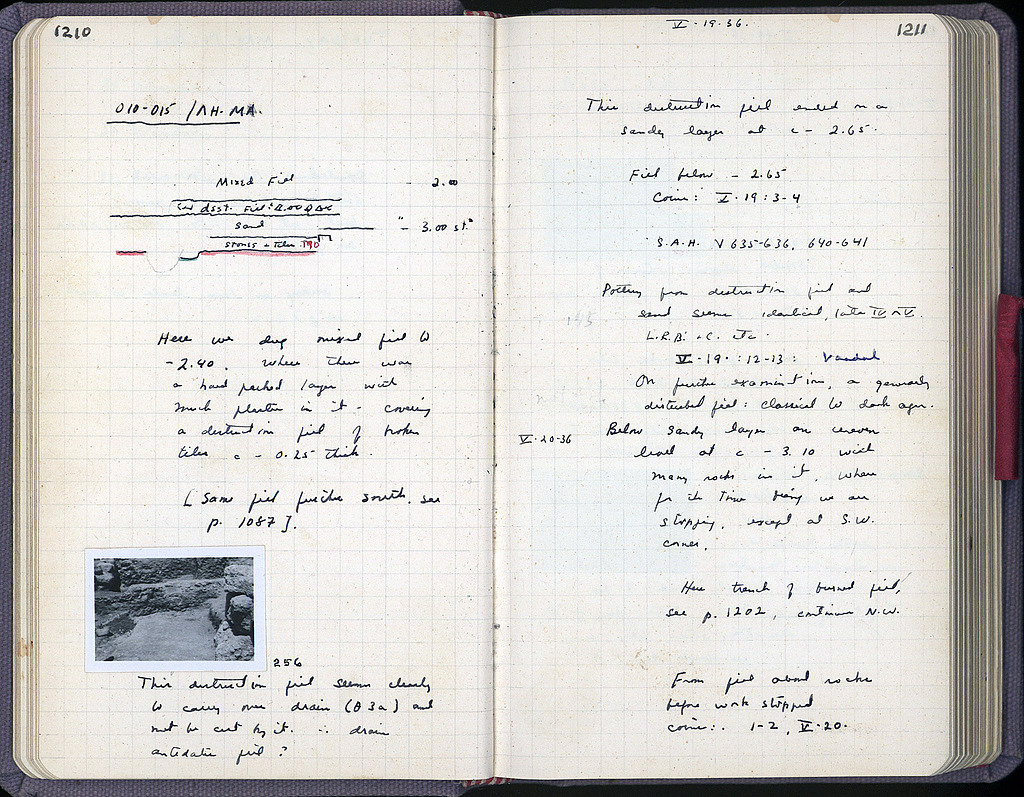 1210
010-015 / ΛH-MA.
Mixed Fill - 2.00
dest. Fill
Sand - 3.00 st.
stones + tiles
Here we dug mixed fill to
-2.40. where there was
a hard packed layer with
much plaster in it - covering
a destruction fill of broken
tiles c - 0.25 thick.
[Same fill further south. see
p. 1087].
256
This destruction fill seems clearly
to carry over drain (θ3a) and
not be cut by it. ∴ drain
antedates fill?
V-19-36.
1211
This destruction fill ended on a
sandy layer at c - 2.65.
Fill below - 2.65
Coins: V-19:3-4
S.A.H. V 635-636, 640-641
Pottery from destruction fill and
sand seems identical, late IV V.
L.R.B. + C. etc.
V-19-:12-13: Vandal
On further examination, a generally
disturbed fill: classical to dark ages.
V-20-36
Below sandy layer an uneven
level at c - 3.10 with
many rocks in it, where
for the time being we are
stopping, except at S.W.
corner.
Here trench of burned fill,
see p. 1202, continues N.W.
From fill about rocks
before work stopped
coins: 1-2, V-20-